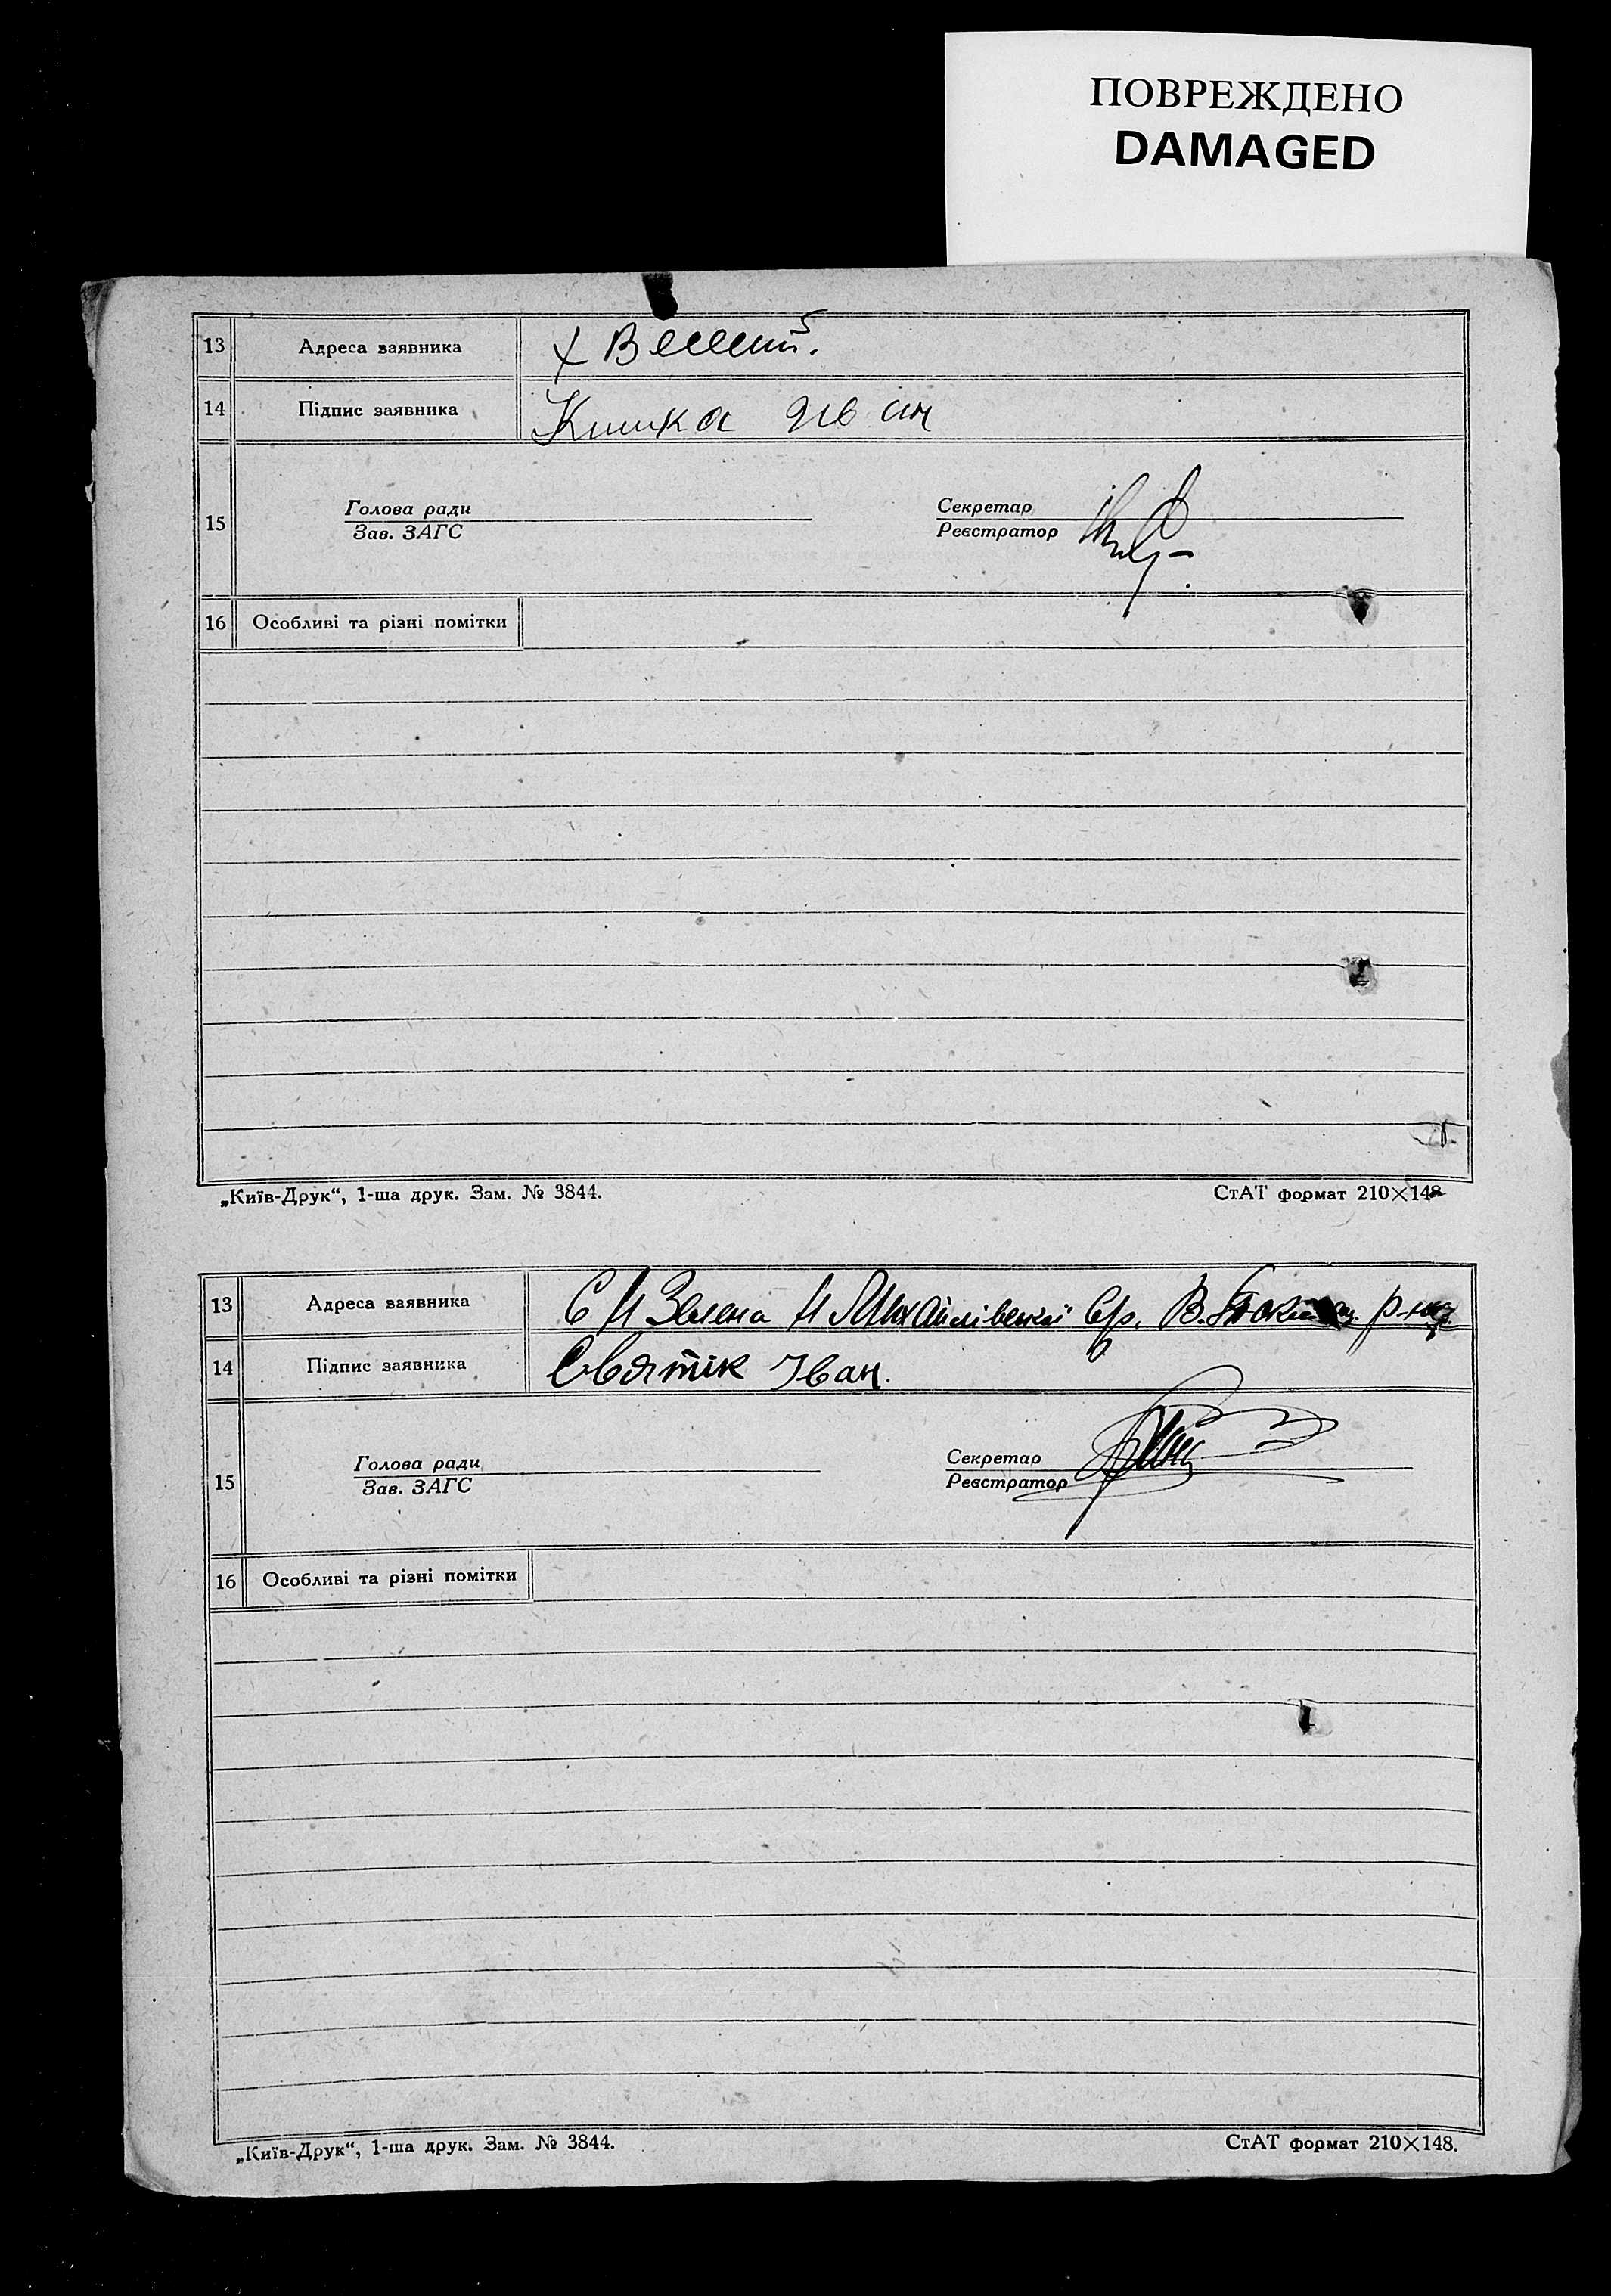 ПОВРЕЖДЕНО
DAMAGED
13 Адреса заявника х Веселий.
14 Підпис заявника Кишка Іван
15 Голова ради Секретар
Зав. ЗАГС Реєстратор
16 Особливі та різні помітки
„Київ-Друк“, 1-ша друк. Зам. № 3844. СтАТ формат 210×148
13 Адреса заявника С Н Зелена Н Михайлівської с/р. В. р-ну
14 Підпис заявника Святік Іван.
15 Голова ради Секретар
Зав. ЗАГС Реєстратор
16 Особливі та різні помітки
„Київ-Друк“, 1-ша друк. Зам. № 3844. СтАТ формат 210×148.